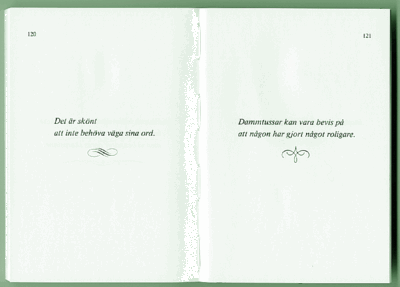 120
Det är skönt
att inte behöva väga sina ord.
121
Dammtussar kan vara bevis på
att någon har gjort något roligare.